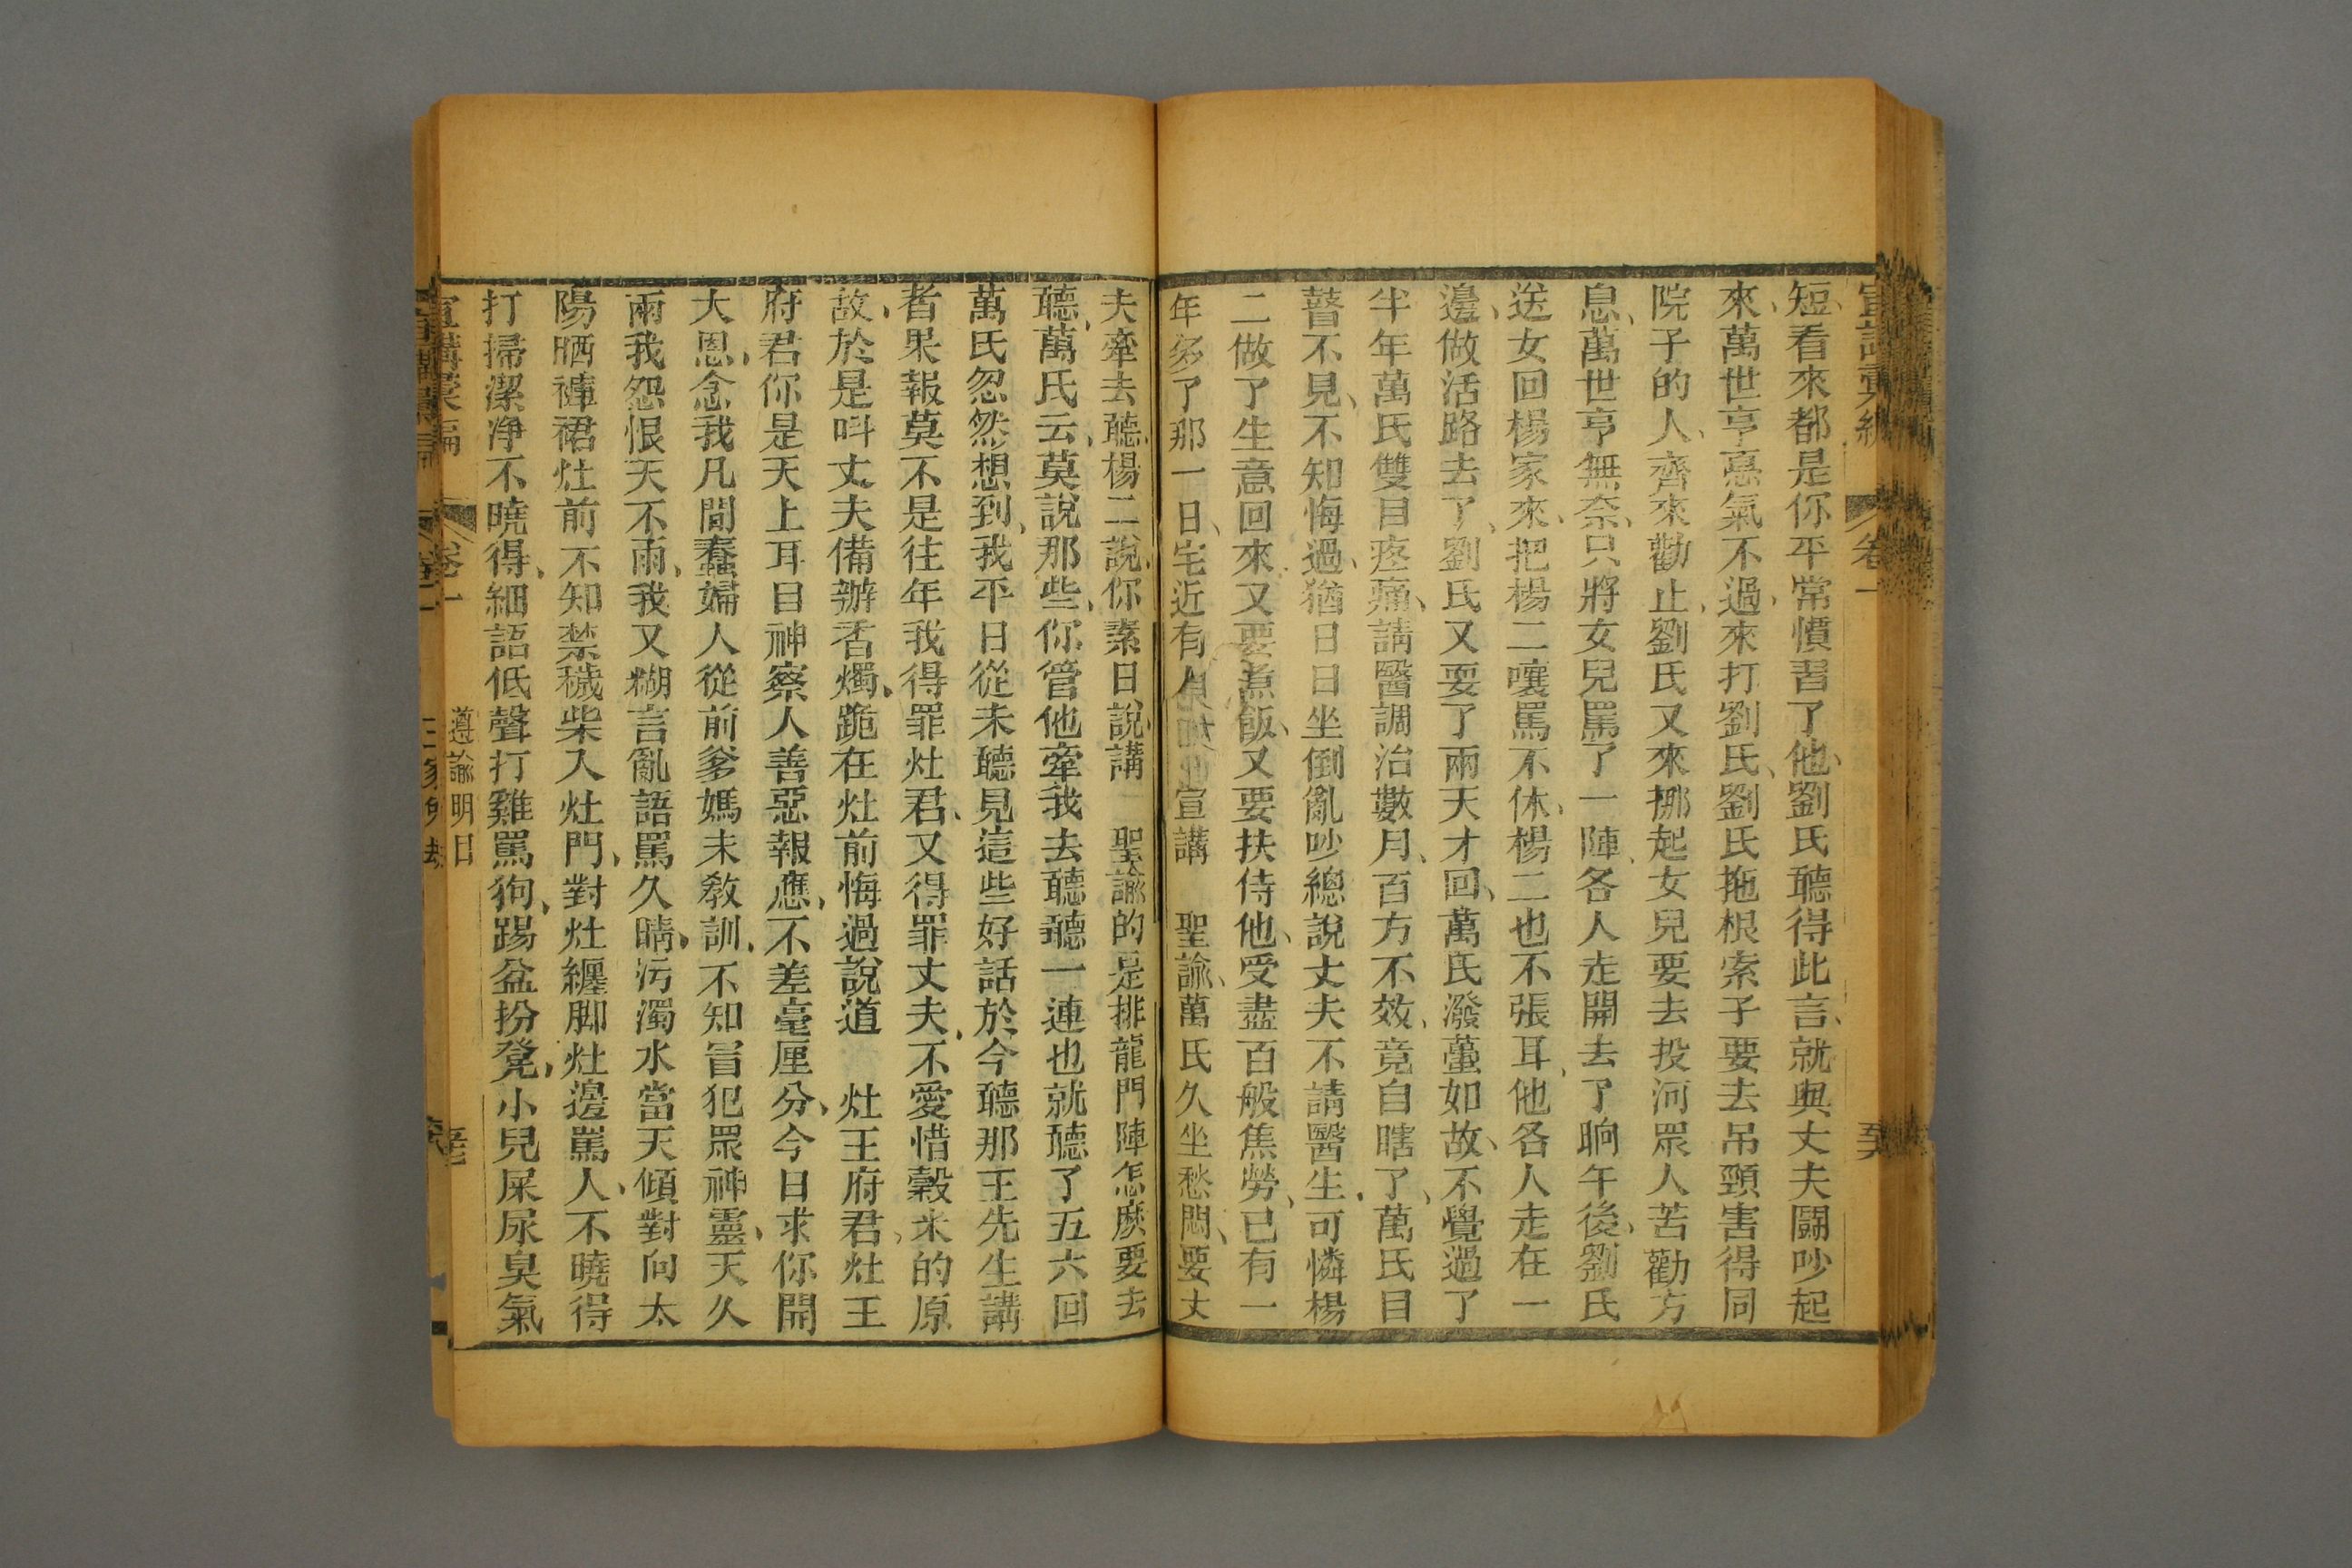 宣講彙編 卷一
短、看來都是你平常慣習了他、劉氏聽得此言、就與丈夫鬪吵起
來、萬世亨惡氣不過、來打劉氏、劉氏拖根索子要去吊頸害得同
院子的人、齊來勸止、劉氏又來挪起女兒要去投河眾人苦勸方
息、萬世亨無奈、只將女兒罵了一陣、各人走開去了晌午後、劉氏
送女回楊家來、把楊二嚷罵不休、楊二也不張耳、他各人走在一
邊、做活路去了、劉氏又耍了兩天才回、萬氏潑蠆如故、不覺過了
半年萬氏雙目疼痛、請醫調治數月、百方不效、竟自瞎了、萬氏目
瞽不見、不知悔過、猶日日坐倒亂吵總說丈夫不請醫生、可憐楊
二做了生意回來又要煮飯、又要扶侍他、受盡百般焦勞、已有一
年多了那一日、宅近有人 宣講 聖諭、萬氏久坐愁悶、要丈
夫牽去聽、楊二說、你素日說講 聖諭的是排龍門陣怎麽要去
聽、萬氏云、莫說那些、你管他牽我去聽聽一連也就聽了五六回
萬氏忽然想到、我平日從未聽見這些好話於今聽那王先生講
者果報莫不是往年我得罪灶君、又得罪丈夫、不愛惜穀米的原
故、於是呌丈夫備辦香燭、跪在灶前悔過說道 灶王府君、灶王
府君你是天上耳目神察人善惡報應、不差毫厘分、今日求你開
大恩、念我凡間蠢婦人從前爹媽未教訓、不知冒犯眾神靈、天久
雨我怨恨天不雨、我又糊言亂語罵久晴、污濁水當天傾對向太
陽晒褲裙灶前不知禁穢柴入灶門、對灶纏脚灶邊罵人、不曉得
打掃潔净不曉得、細語低聲打雞罵狗、踢盆扮凳、小兒屎尿臭氣
宣講彙編 卷一 遵諭明目